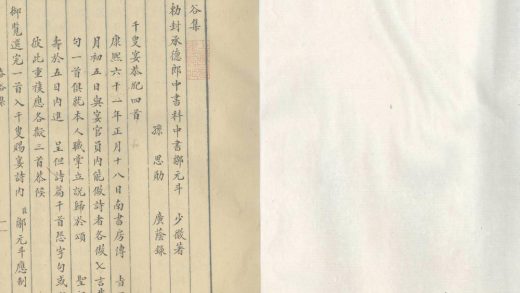 谷集
勅封承德郎中書科中書鄭元斗 少微著
孫 思勛 廣蔭錄
千叟宴恭紀四首
康熙六十一年正月十八日南書房傳 旨
月初五日與宴官員內能做詩者各做七言
句一首俱就本人職掌立說歸於頌 聖
壽於五日內進 呈但詩篇千首恐字句或
故此重複應各擬三首恭候
御覽選定一首入千叟賜宴詩內 臣鄭元斗應制
谷集 一